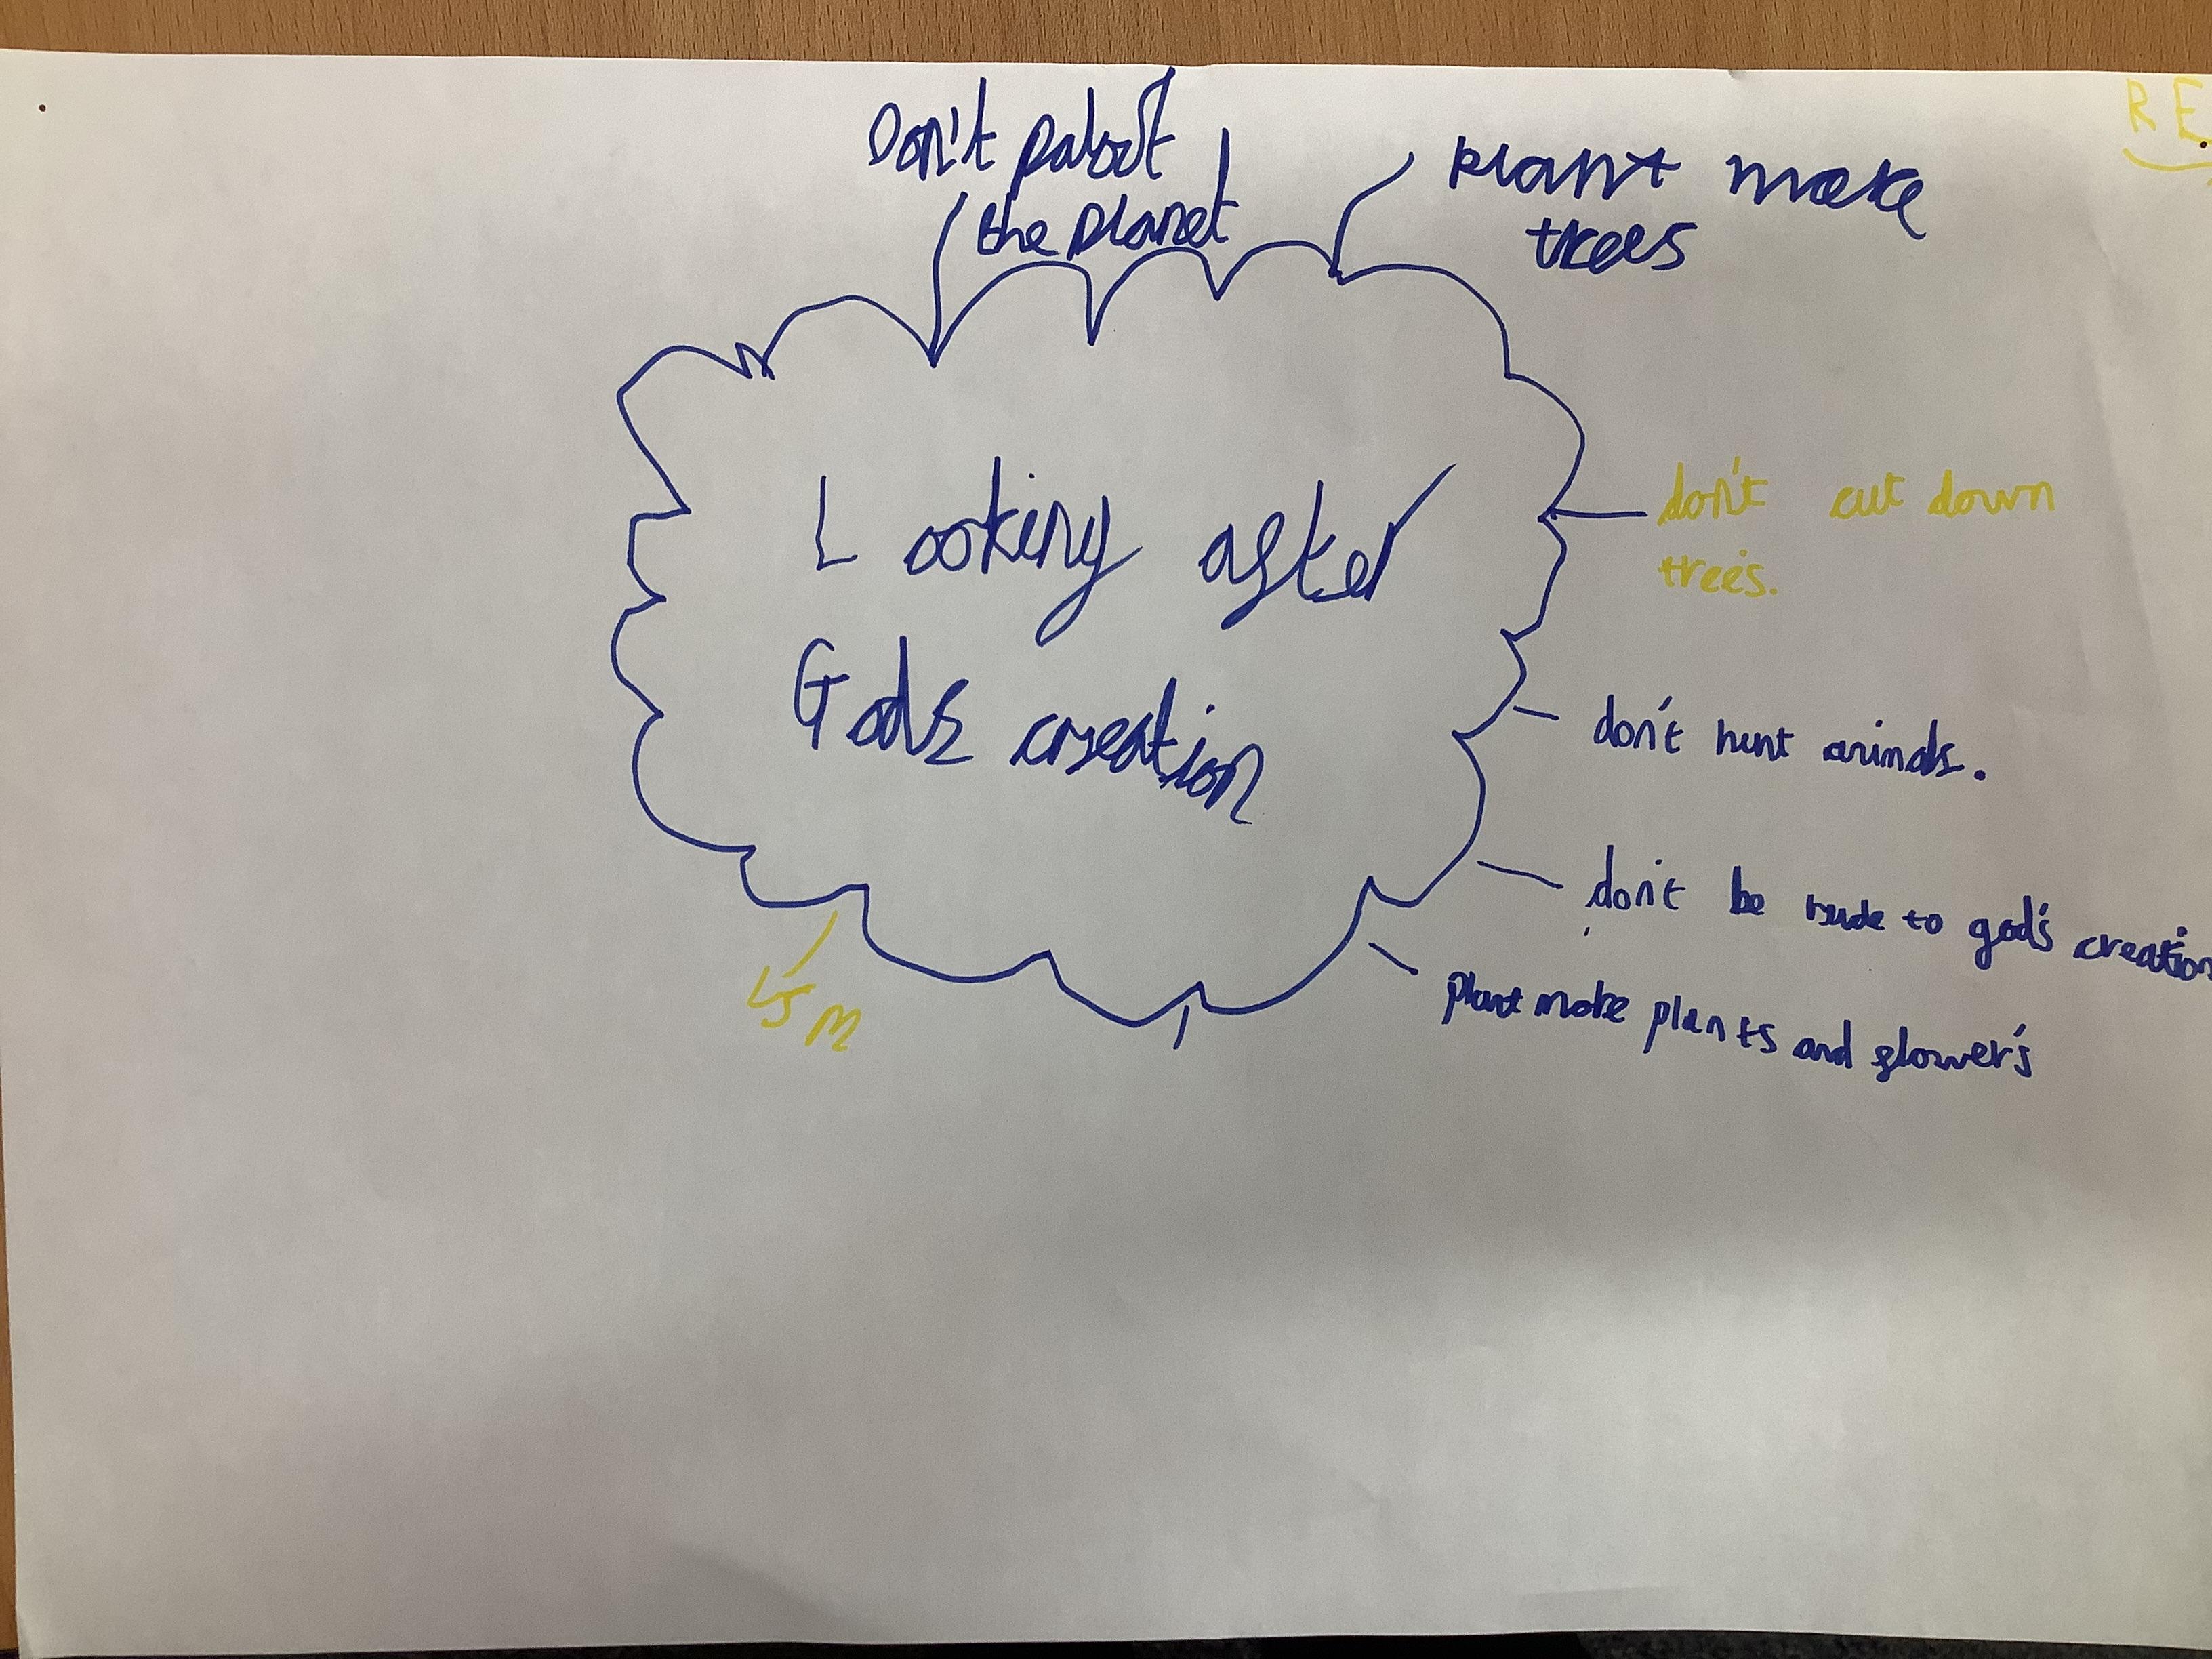 R E
Don't palout
the planet
plant more
trees
Looking after
Gods creation
don't cut down
trees.
don't hunt animals.
don't be rude to god's creation
plant more plants and flower's